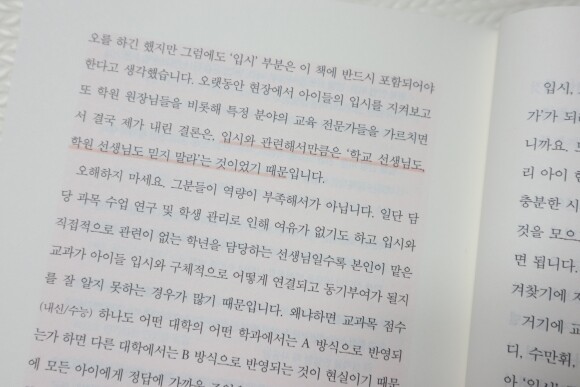 오를 하긴 했지만 그럼에도 ‘입시’ 부분은 이 책에 반드시 포함되어야
한다고 생각했습니다. 오랫동안 현장에서 아이들의 입시를 지켜보고
또 학원 원장님들을 비롯해 특정 분야의 교육 전문가들을 가르치면
서 결국 제가 내린 결론은, 입시와 관련해서만큼은 ‘학교 선생님도,
학원 선생님도 믿지 말라’는 것이었기 때문입니다.
오해하지 마세요. 그분들이 역량이 부족해서가 아닙니다. 일단 담
당 과목 수업 연구 및 학생 관리로 인해 여유가 없기도 하고 입시와
직접적으로 관련이 없는 학년을 담당하는 선생님일수록 본인이 맡은
교과가 아이들 입시와 구체적으로 어떻게 연결되고 동기부여가 될지
를 잘 알지 못하는 경우가 많기 때문입니다. 왜냐하면 교과목 점수
(내신/수능) 하나도 어떤 대학의 어떤 학과에서는 A 방식으로 반영되
는가 하면 다른 대학에서는 B 방식으로 반영되는 것이 현실이기 때문
에 모든 아이에게 정답에 가까운
입시,
가’가 되
니까요.
리 아이
충분한 시
것을 모으
면 됩니다.
겨찾기에
거기에
디, 수만휘,
아 ‘입시’